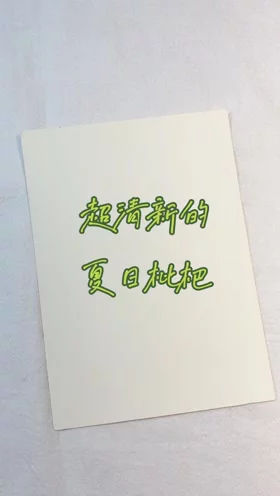 超清新的
夏日枇杷